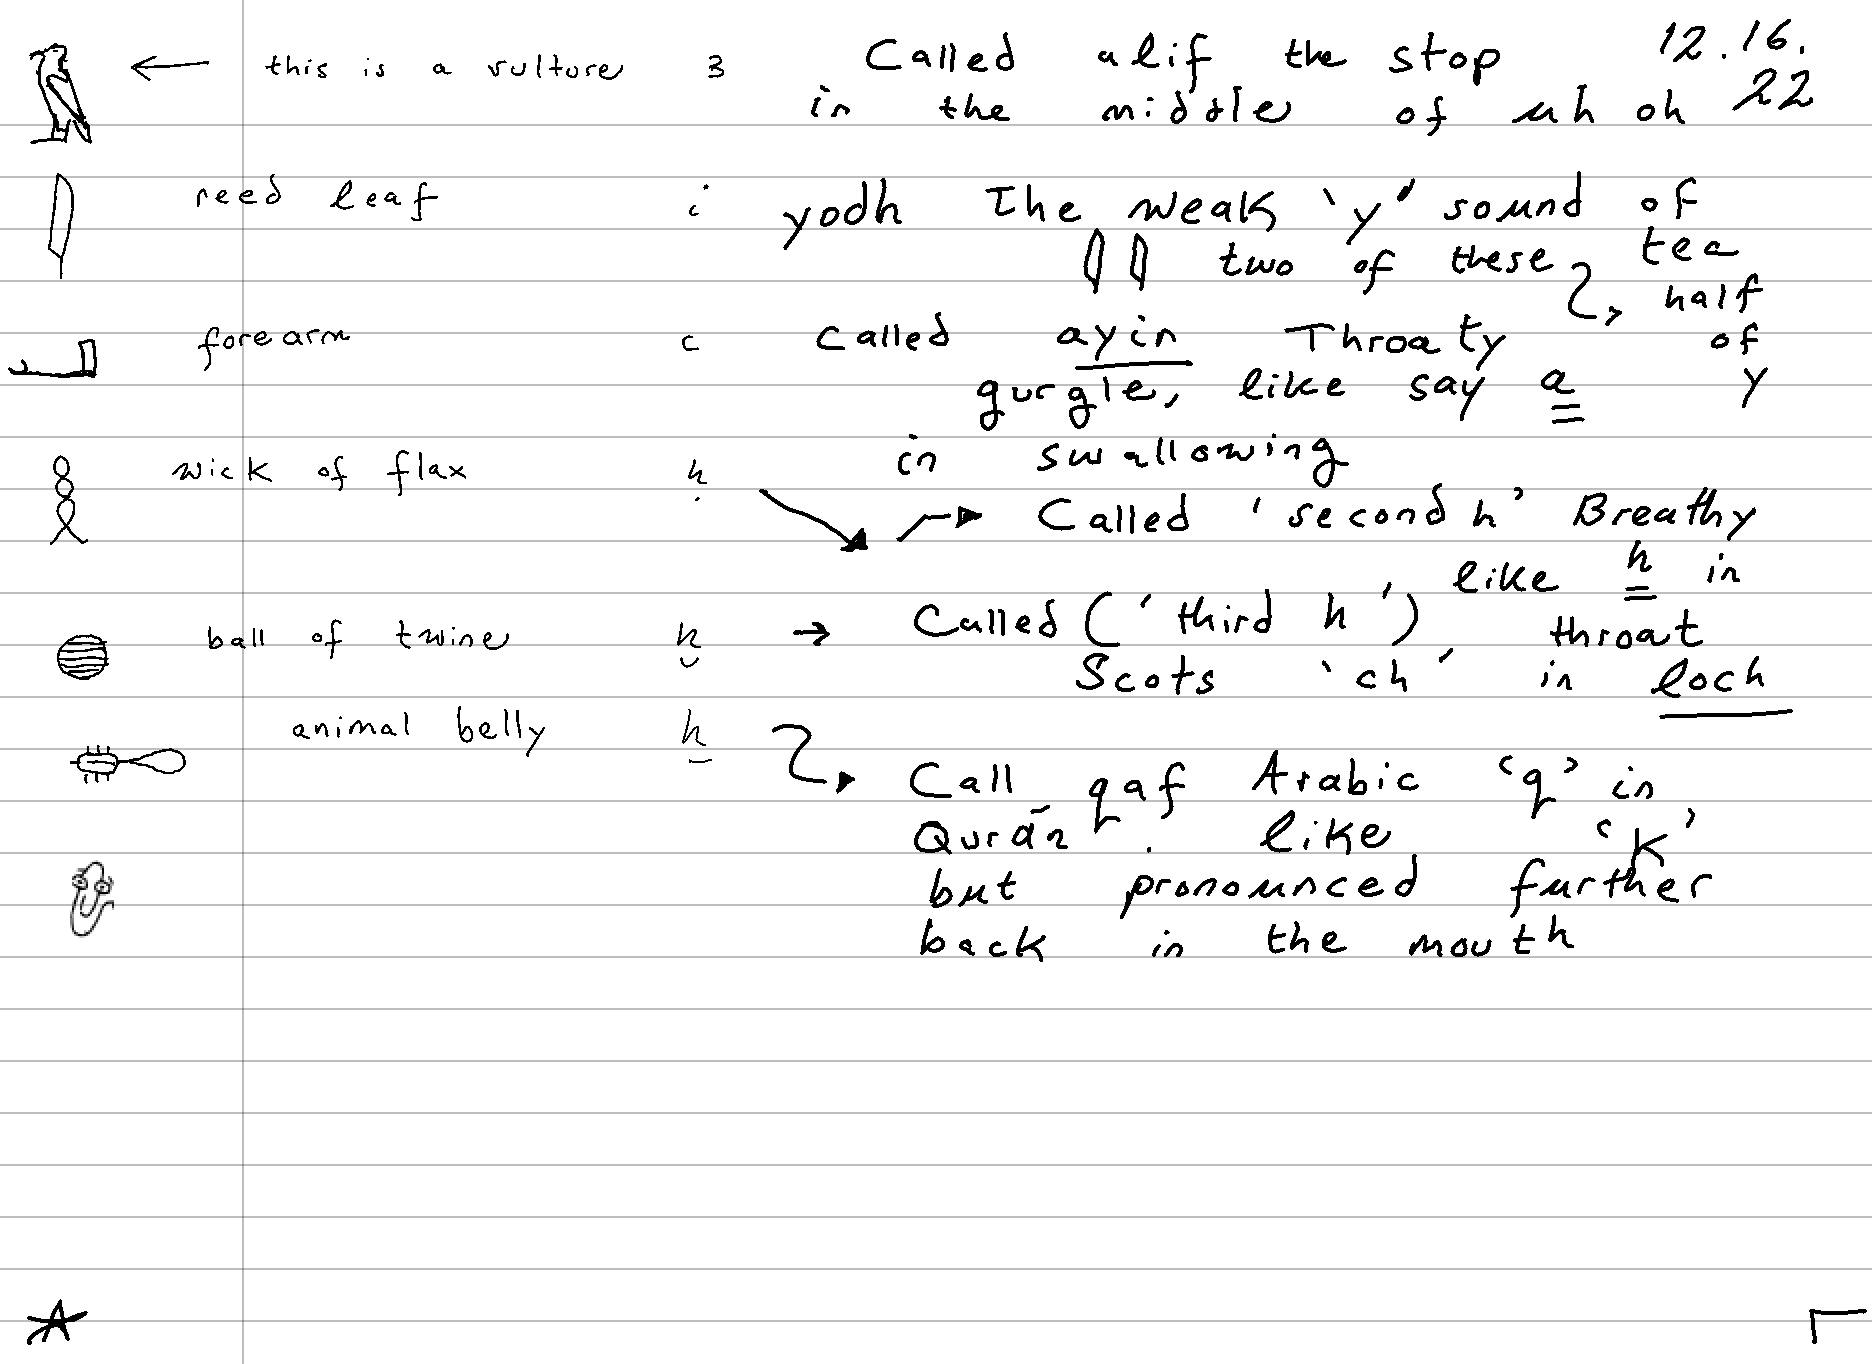 this is a vulture 3 Called alif the stop 12.16.
in the middle of uh oh 22
reed leaf i yodh The weak 'y' sound of
two of these tea
half
forearm c Called ayin Throaty of
gurgle, like say a y
in swallowing
wick of flax ḥ
Called 'second h' Breathy
like h in
ball of twine ḫ Called ('third h') throat
Scots 'ch' in loch
animal belly ẖ
Call qaf Arabic 'q' in
Qurān. like 'k'
but pronounced further
back in the mouth